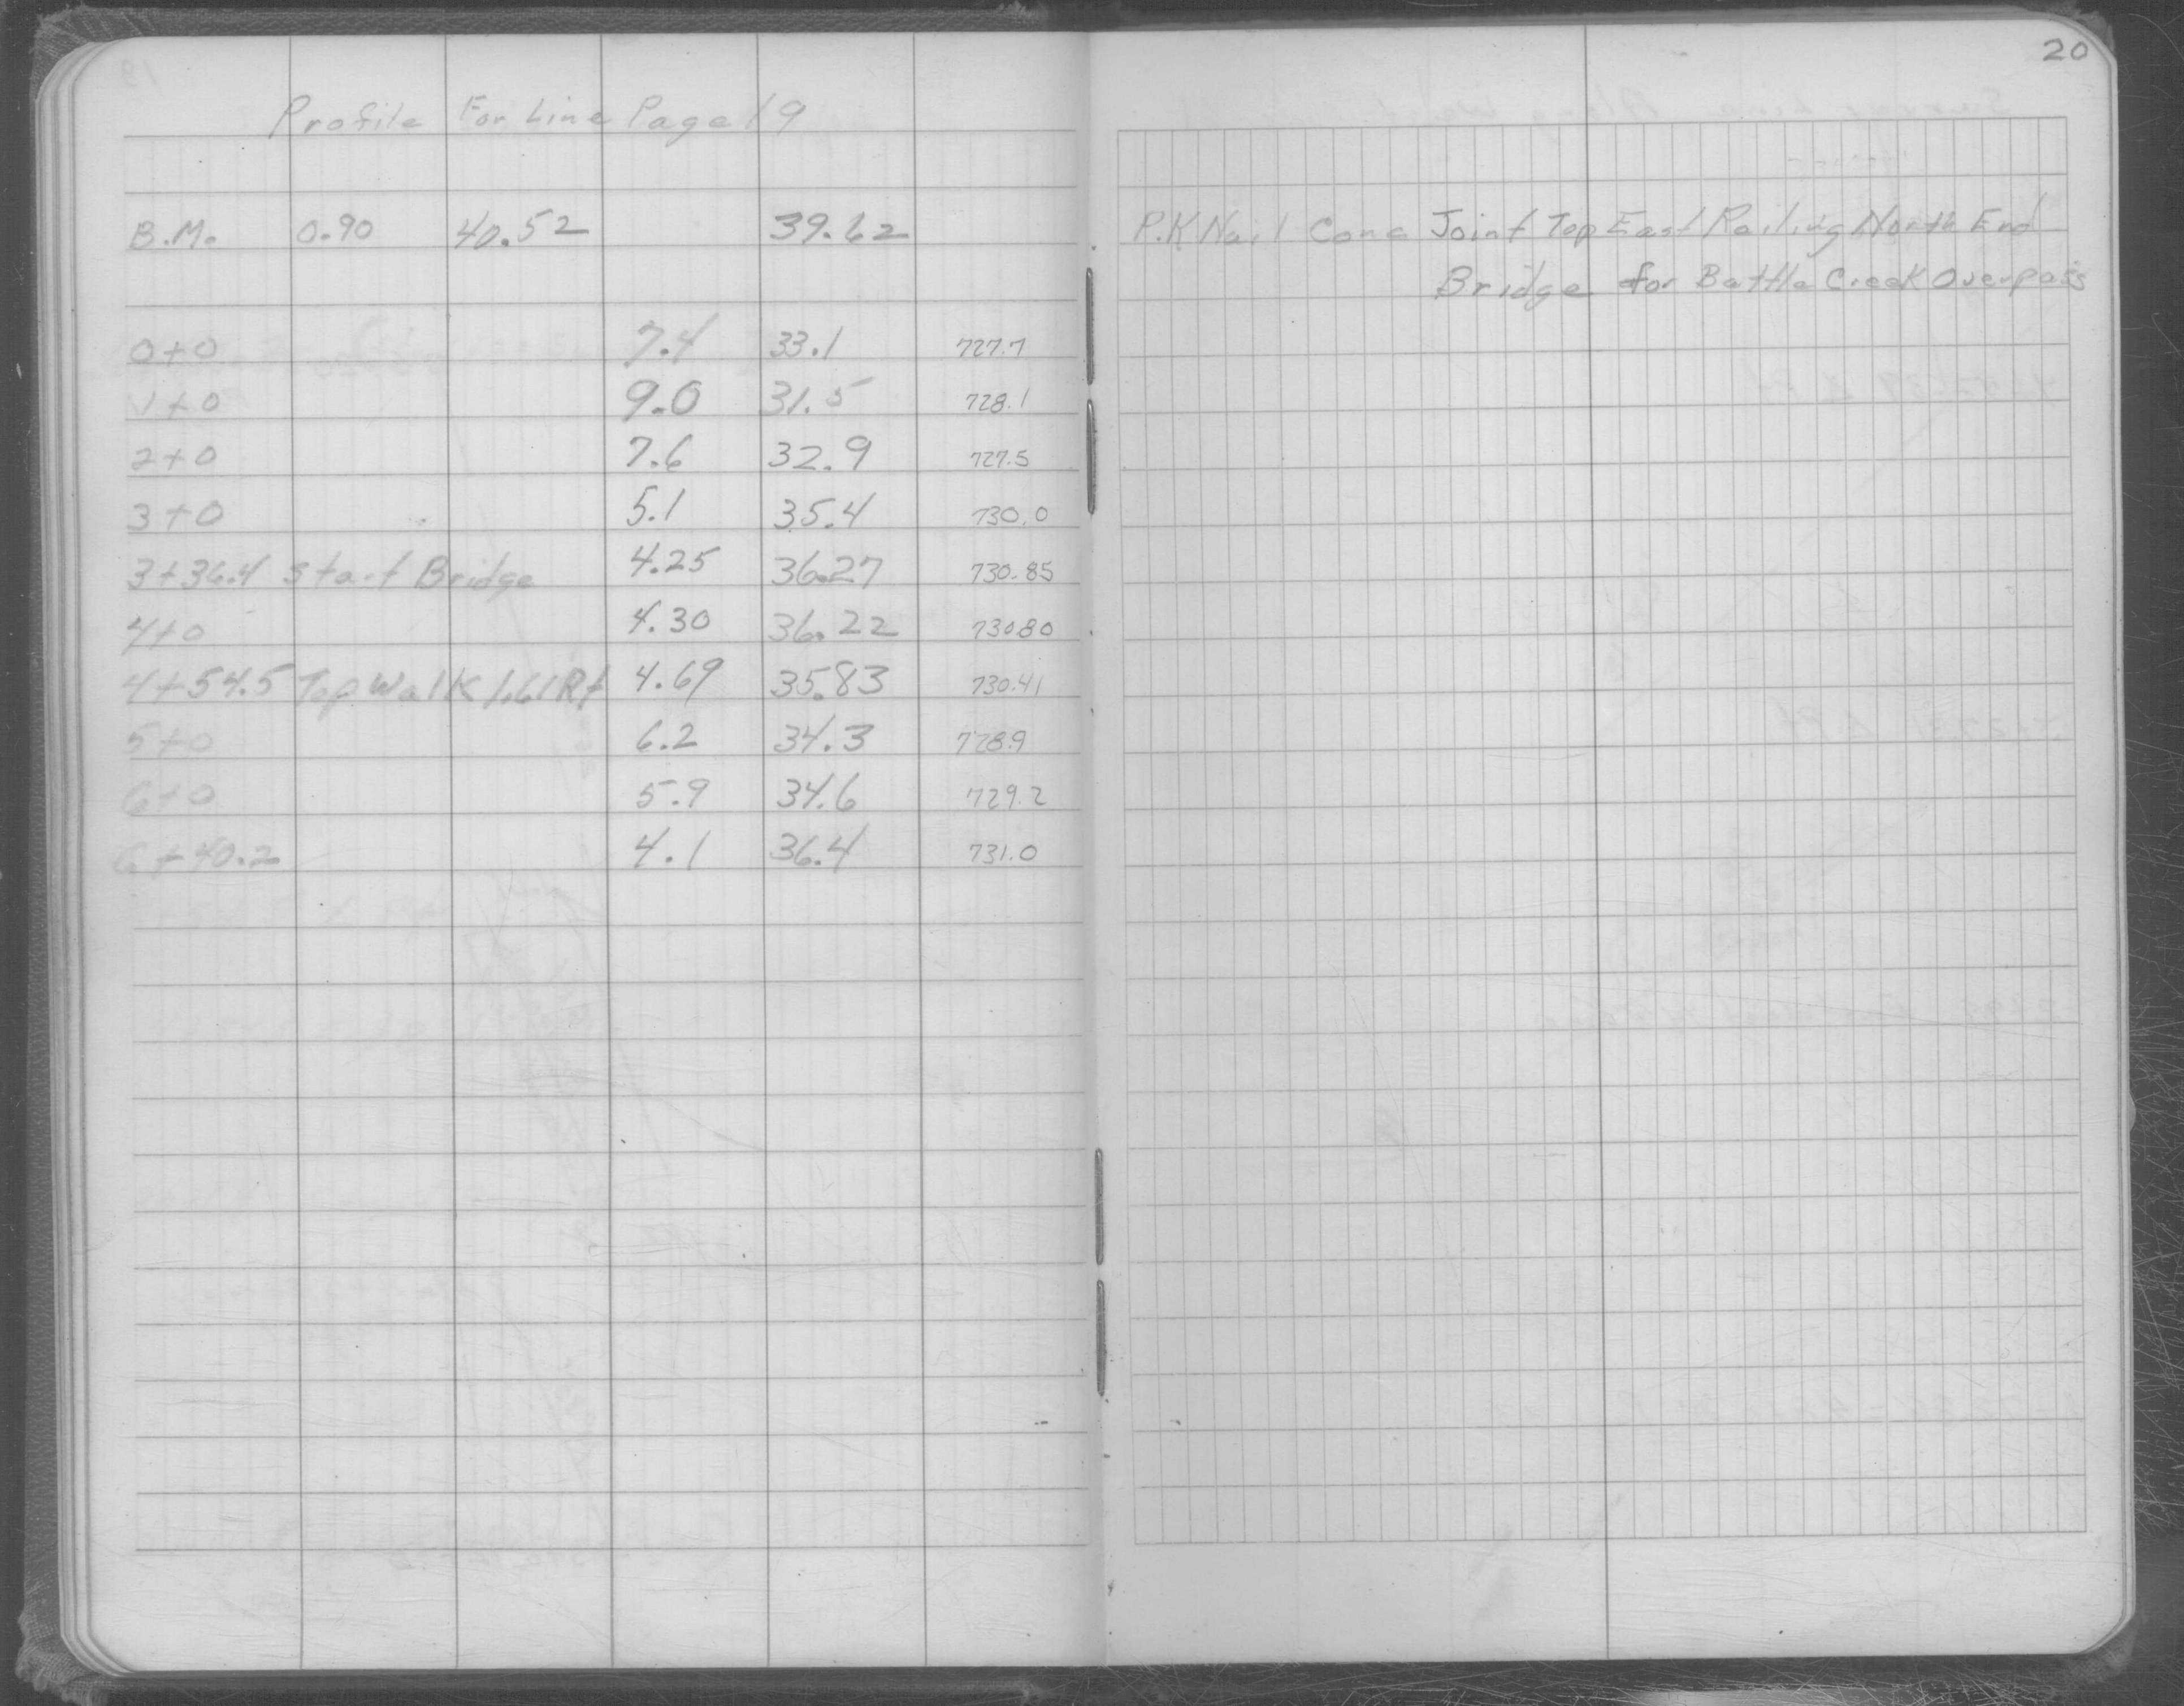 20
Profile For Line Page 19
B.M. 0.90 40.52 39.62 P.K Nail Conc Joint Top East Railing North End
Bridge for Battle Creek Overpass
0+0 7.4 33.1 727.7
1+0 9.0 31.5 728.1
2+0 7.6 32.9 727.5
3+0 5.1 35.4 730.0
3+36.4 Start Bridge 4.25 36.27 730.85
4+0 4.30 36.22 730.80
4+54.5 Top Walk 1.61 Rt 4.69 35.83 730.41
5+0 6.2 34.3 728.9
6+0 5.9 34.6 729.2
6+40.2 4.1 36.4 731.0